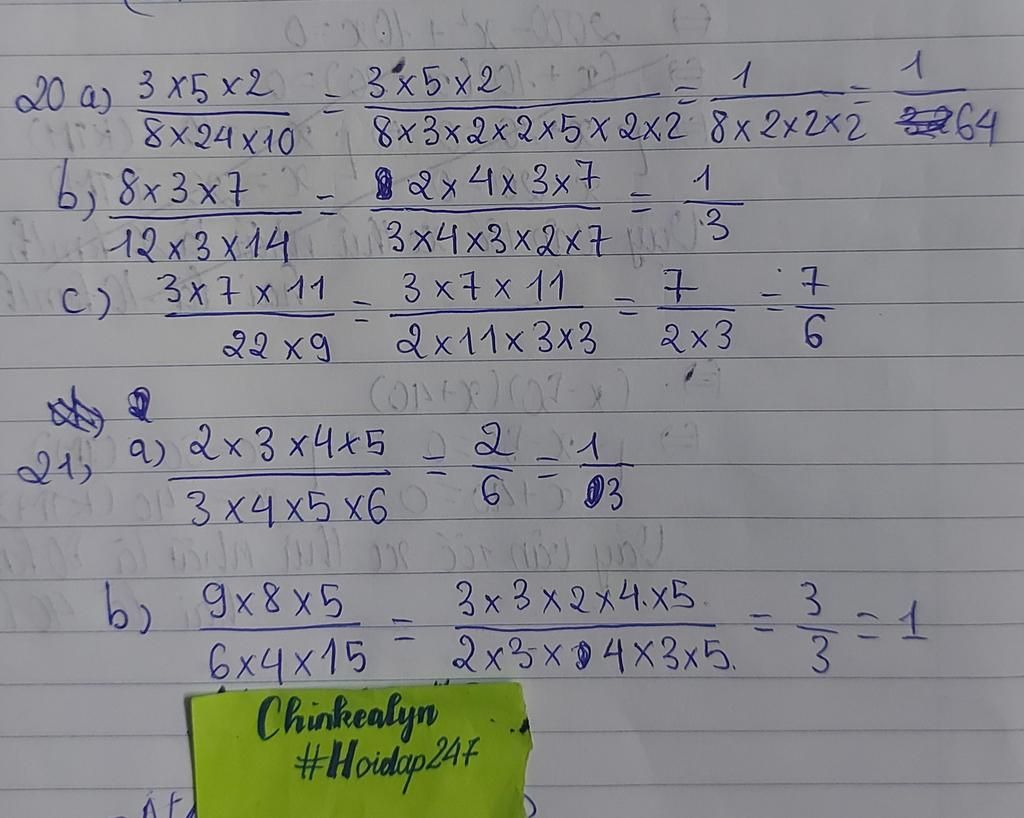 20 a) 3×5×2 / 8×24×10 = 3×5×2 / 8×3×2×2×5×2×2 = 1 / 8×2×2×2 = 1 / 64
b) 8×3×7 / 12×3×14 = 2×4×3×7 / 3×4×3×2×7 = 1 / 3
c) 3×7×11 / 22×9 = 3×7×11 / 2×11×3×3 = 7 / 2×3 = 7 / 6
21, a) 2×3×4×5 / 3×4×5×6 = 2 / 6 = 1 / 3
b) 9×8×5 / 6×4×15 = 3×3×2×4×5 / 2×3×4×3×5 = 3 / 3 = 1
Chinkealyn
#Hoidap247